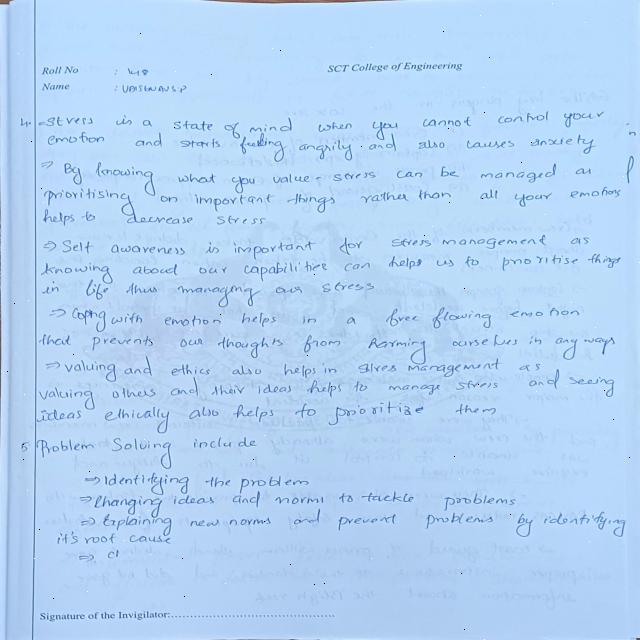 Roll No : 48 SCT College of Engineering
Name : VAISHNAV S.P
4. Stress is a state of mind when you cannot control your
emotion and starts feeling angrily and also causes anxiety
⇒ By knowing what you value - stress can be managed as
prioritising on important things rather than all your emotions
helps to decrease stress
⇒ Self awareness is important for stress management as
knowing about our capabilities can helps us to prioritise things
in life thus managing our stress
⇒ Coping with emotion helps in a free flowing emotion
that prevents our thoughts from harming ourselves in any ways
⇒ valuing and ethics also helps in stress management as
valuing others and their ideas helps to manage stress and seeing
ideas ethically also helps to prioritize them
5 Problem Solving include
⇒ Identifying the problem
⇒ Changing ideas and norms to tackle problems
⇒ Explaining new norms and prevent problems by identifying
it's root cause
⇒
Signature of the Invigilator: